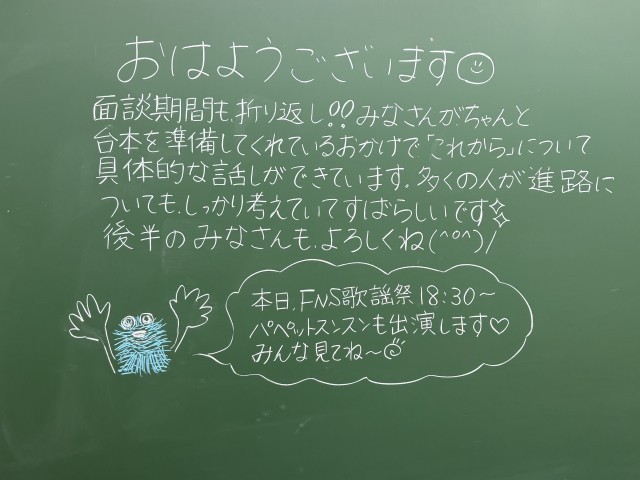 おはようございます
面談期間も、折り返し!!みなさんがちゃんと
台本を準備してくれているおかげで「これから」について
具体的な話しができています。多くの人が進路に
ついても、しっかり考えていてすばらしいです
後半のみなさんも、よろしくね(^o^)/
本日、FNS歌謡祭18:30〜
パペットスンスンも出演します♡
みんな見てね〜